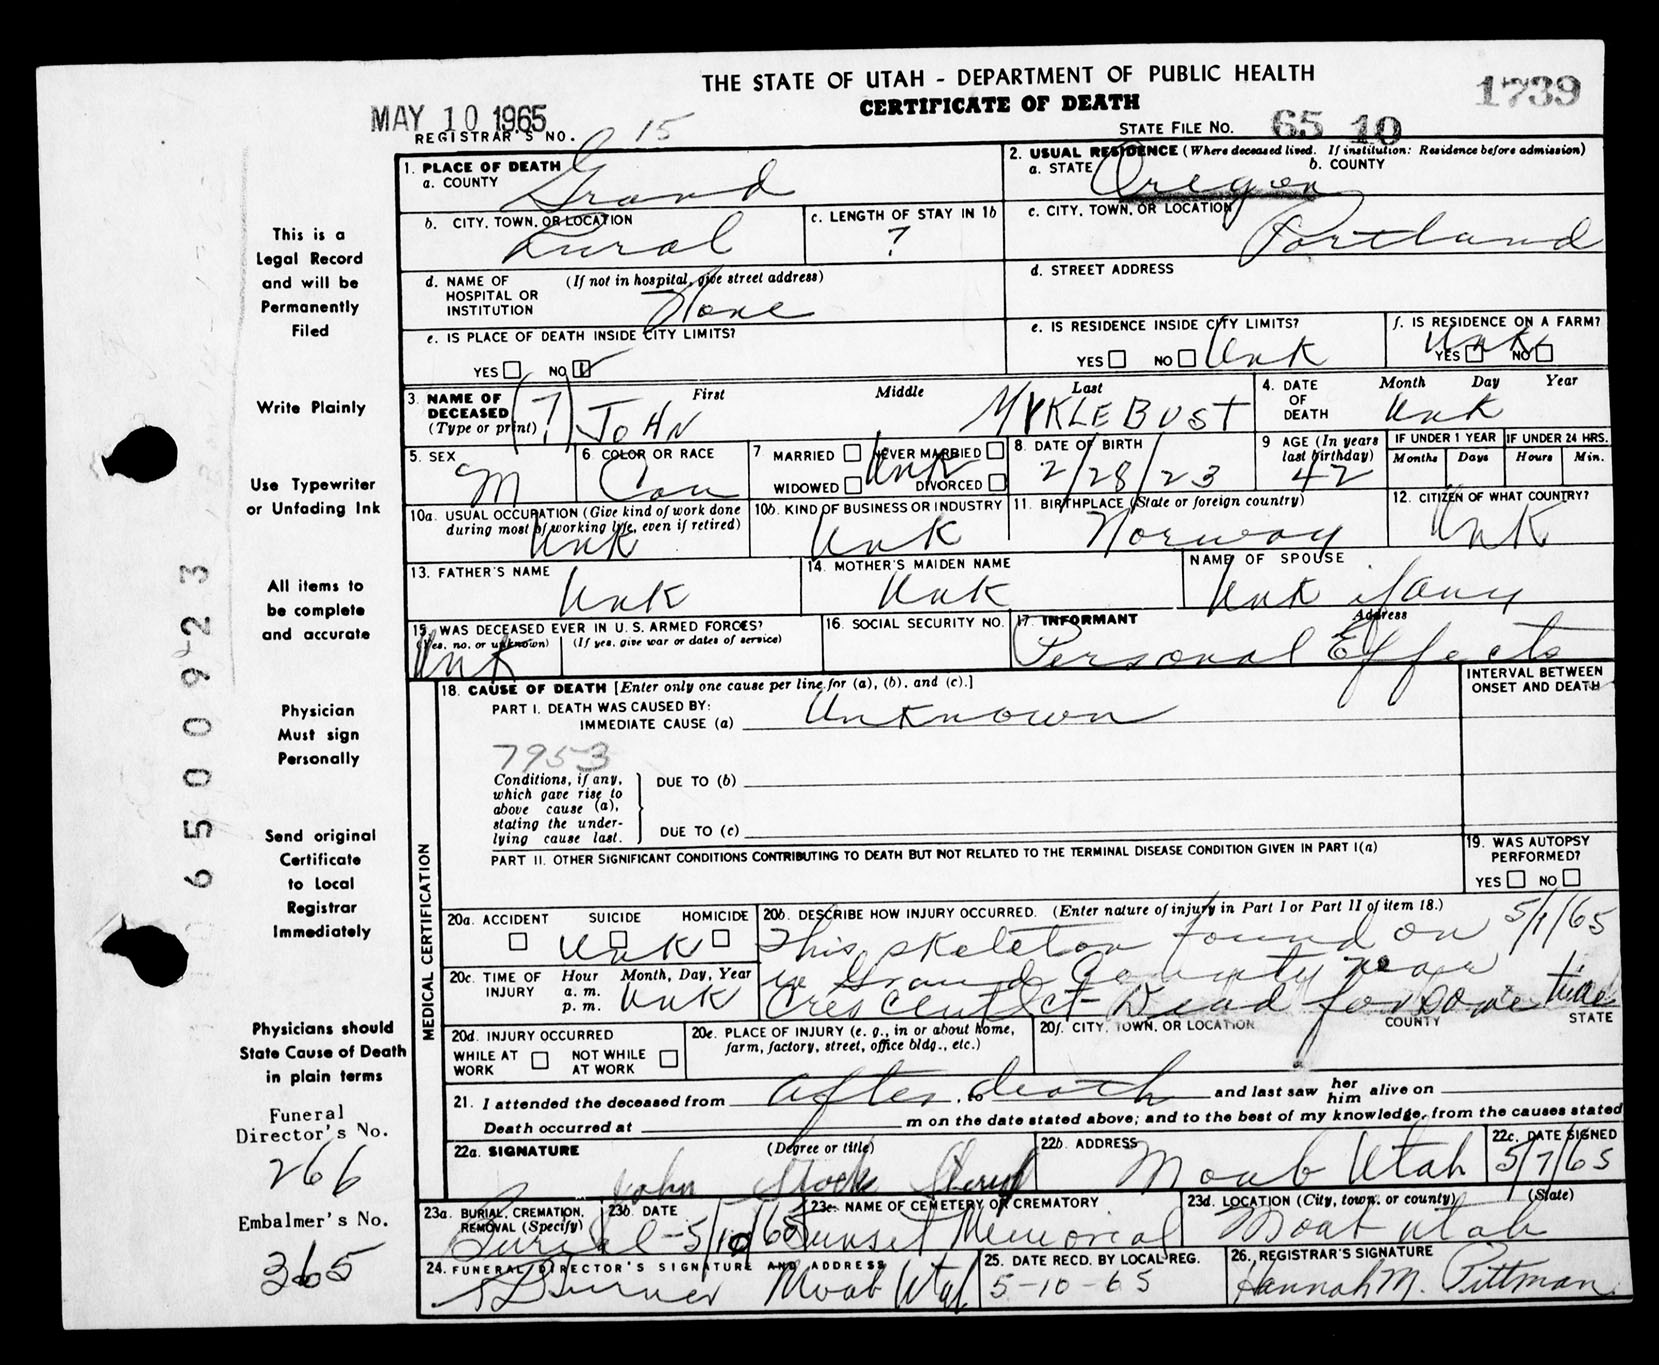 THE STATE OF UTAH - DEPARTMENT OF PUBLIC HEALTH
CERTIFICATE OF DEATH
1739
MAY 10 1965
REGISTRAR'S NO. 15
STATE FILE NO. 65 10
This is a
Legal Record
and will be
Permanently
Filed
Write Plainly
Use Typewriter
or Unfading Ink
All items to
be complete
and accurate
Physician
Must sign
Personally
Send original
Certificate
to Local
Registrar
Immediately
Physicians should
State Cause of Death
in plain terms
Funeral
Director's No.
266
Embalmer's No.
365
6500923
1. PLACE OF DEATH
a. COUNTY Grand
2. USUAL RESIDENCE (Where deceased lived. If institution: Residence before admission)
a. STATE Oregon b. COUNTY
b. CITY, TOWN, OR LOCATION Rural
c. LENGTH OF STAY IN 1b ?
c. CITY, TOWN, OR LOCATION Portland
d. NAME OF HOSPITAL OR INSTITUTION (If not in hospital, give street address) None
d. STREET ADDRESS
e. IS PLACE OF DEATH INSIDE CITY LIMITS?
YES NO
e. IS RESIDENCE INSIDE CITY LIMITS?
YES NO Unk
f. IS RESIDENCE ON A FARM?
YES NO Unk
3. NAME OF DECEASED (Type or print) First Middle Last
(?) JOHN MYKLEBUST
4. DATE OF DEATH Month Day Year
Unk
5. SEX M
6. COLOR OR RACE Cau
7 MARRIED NEVER MARRIED
WIDOWED DIVORCED Unk
8 DATE OF BIRTH 2/28/23
9 AGE (In years last birthday) 42
IF UNDER 1 YEAR Months Days
IF UNDER 24 HRS. Hours Min.
10a. USUAL OCCUPATION (Give kind of work done during most of working life, even if retired) Unk
10b. KIND OF BUSINESS OR INDUSTRY Unk
11. BIRTHPLACE (State or foreign country) Norway
12. CITIZEN OF WHAT COUNTRY? Unk
13. FATHER'S NAME Unk
14. MOTHER'S MAIDEN NAME Unk
NAME OF SPOUSE Unk if any
15. WAS DECEASED EVER IN U.S. ARMED FORCES?
(Yes, no. or unknown) (If yes, give war or dates of service)
Unk
16. SOCIAL SECURITY NO.
17. INFORMANT Address
Personal Effects
MEDICAL CERTIFICATION
18. CAUSE OF DEATH [Enter only one cause per line for (a), (b), and (c).]
INTERVAL BETWEEN ONSET AND DEATH
PART I. DEATH WAS CAUSED BY:
IMMEDIATE CAUSE (a) Unknown
7953
Conditions, if any, which gave rise to above cause (a), stating the underlying cause last.
DUE TO (b)
DUE TO (c)
PART II. OTHER SIGNIFICANT CONDITIONS CONTRIBUTING TO DEATH BUT NOT RELATED TO THE TERMINAL DISEASE CONDITION GIVEN IN PART I(a)
19. WAS AUTOPSY PERFORMED?
YES NO
20a. ACCIDENT SUICIDE HOMICIDE
Unk
20b. DESCRIBE HOW INJURY OCCURRED. (Enter nature of injury in Part I or Part II of item 18.)
This skeleton found on 5/1/65
in Grand County near
Crescent Jct - Dead for some time
20c. TIME OF INJURY Hour a.m. p.m. Month, Day, Year
Unk
20d. INJURY OCCURRED
WHILE AT WORK NOT WHILE AT WORK
20e. PLACE OF INJURY (e. g., in or about home, farm, factory, street, office bldg., etc.)
20f. CITY, TOWN, OR LOCATION COUNTY STATE
21. I attended the deceased from after to death and last saw her him alive on
Death occurred at m on the date stated above; and to the best of my knowledge, from the causes stated
22a. SIGNATURE (Degree or title)
John Stocks Sheriff
22b. ADDRESS Moab Utah
22c. DATE SIGNED 5/7/65
23a. BURIAL, CREMATION, REMOVAL (Specify) Burial
23b. DATE 5/10/65
23c. NAME OF CEMETERY OR CREMATORY Sunset Memorial
23d. LOCATION (City, town, or county) (State) Moab Utah
24. FUNERAL DIRECTOR'S SIGNATURE AND ADDRESS
Moab Utah
25. DATE RECD. BY LOCAL REG.
5-10-65
26. REGISTRAR'S SIGNATURE
Hannah M. Pittman